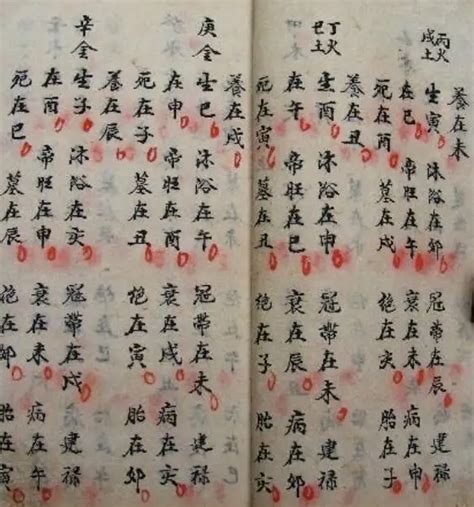 養在未
丙火
戊土
生寅 沐浴在卯 冠帶在辰 建禄
在巳 帝旺在午 衰在未 病在申
死在酉 墓在戌 絕在亥 胎在子
養在丑
丁火
巳土
生酉 沐浴在申 冠帶在未 建禄
在午 帝旺在巳 衰在辰 病在卯
死在寅 墓在丑 絕在子 胎在亥
養在戌
庚金
生巳 沐浴在午 冠帶在未 建禄
在申 帝旺在酉 衰在戌 病在亥
死在子 墓在丑 絕在寅 胎在卯
養在辰
辛金
生子 沐浴在亥 冠帶在戌 建禄
在酉 帝旺在申 衰在未 病在午
死在巳 墓在辰 絕在卯 胎在寅